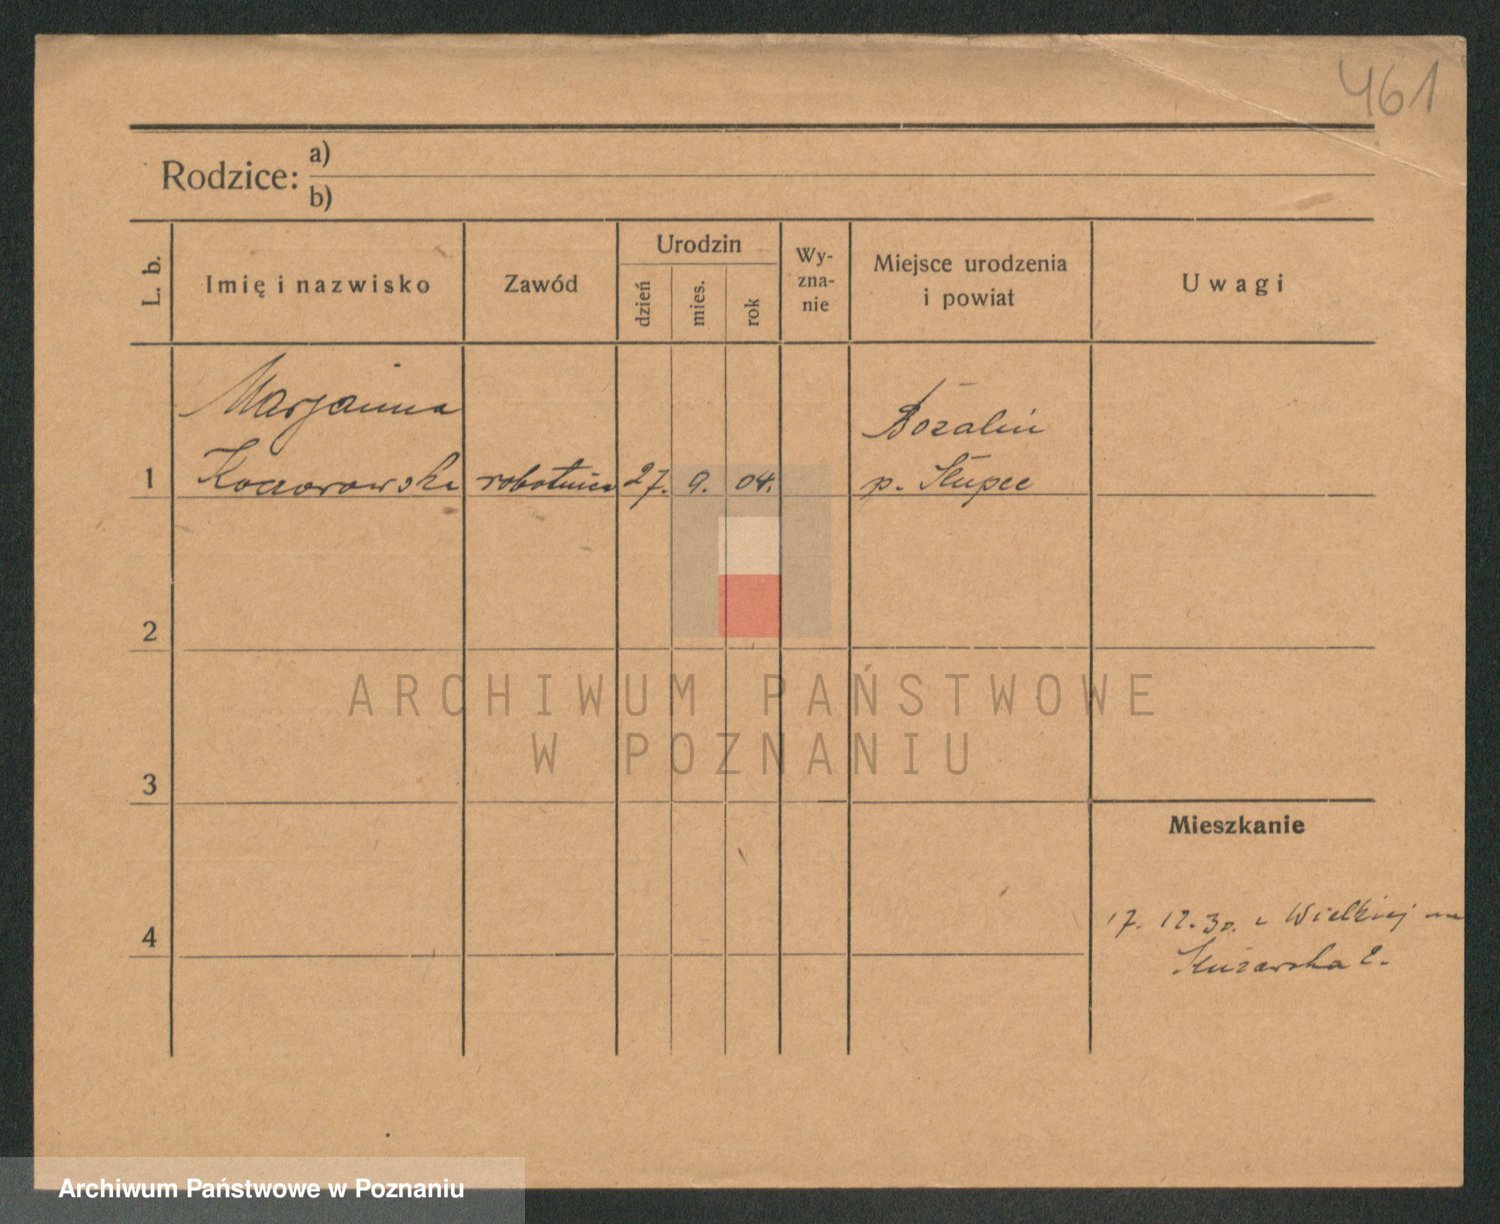 461
Rodzice: a)
b)
L. b.
Imię i nazwisko
Zawód
Urodzin
dzień
mies.
rok
Wy-
zna-
nie
Miejsce urodzenia
i powiat
Uwagi
Marjanna
1 robotnica 27. 9. 04.
p. Słupce
2
3
4
Mieszkanie
17. 12. 30. z Wielkiej na
ARCHIWUM PAŃSTWOWE
W POZNANIU
Archiwum Państwowe w Poznaniu